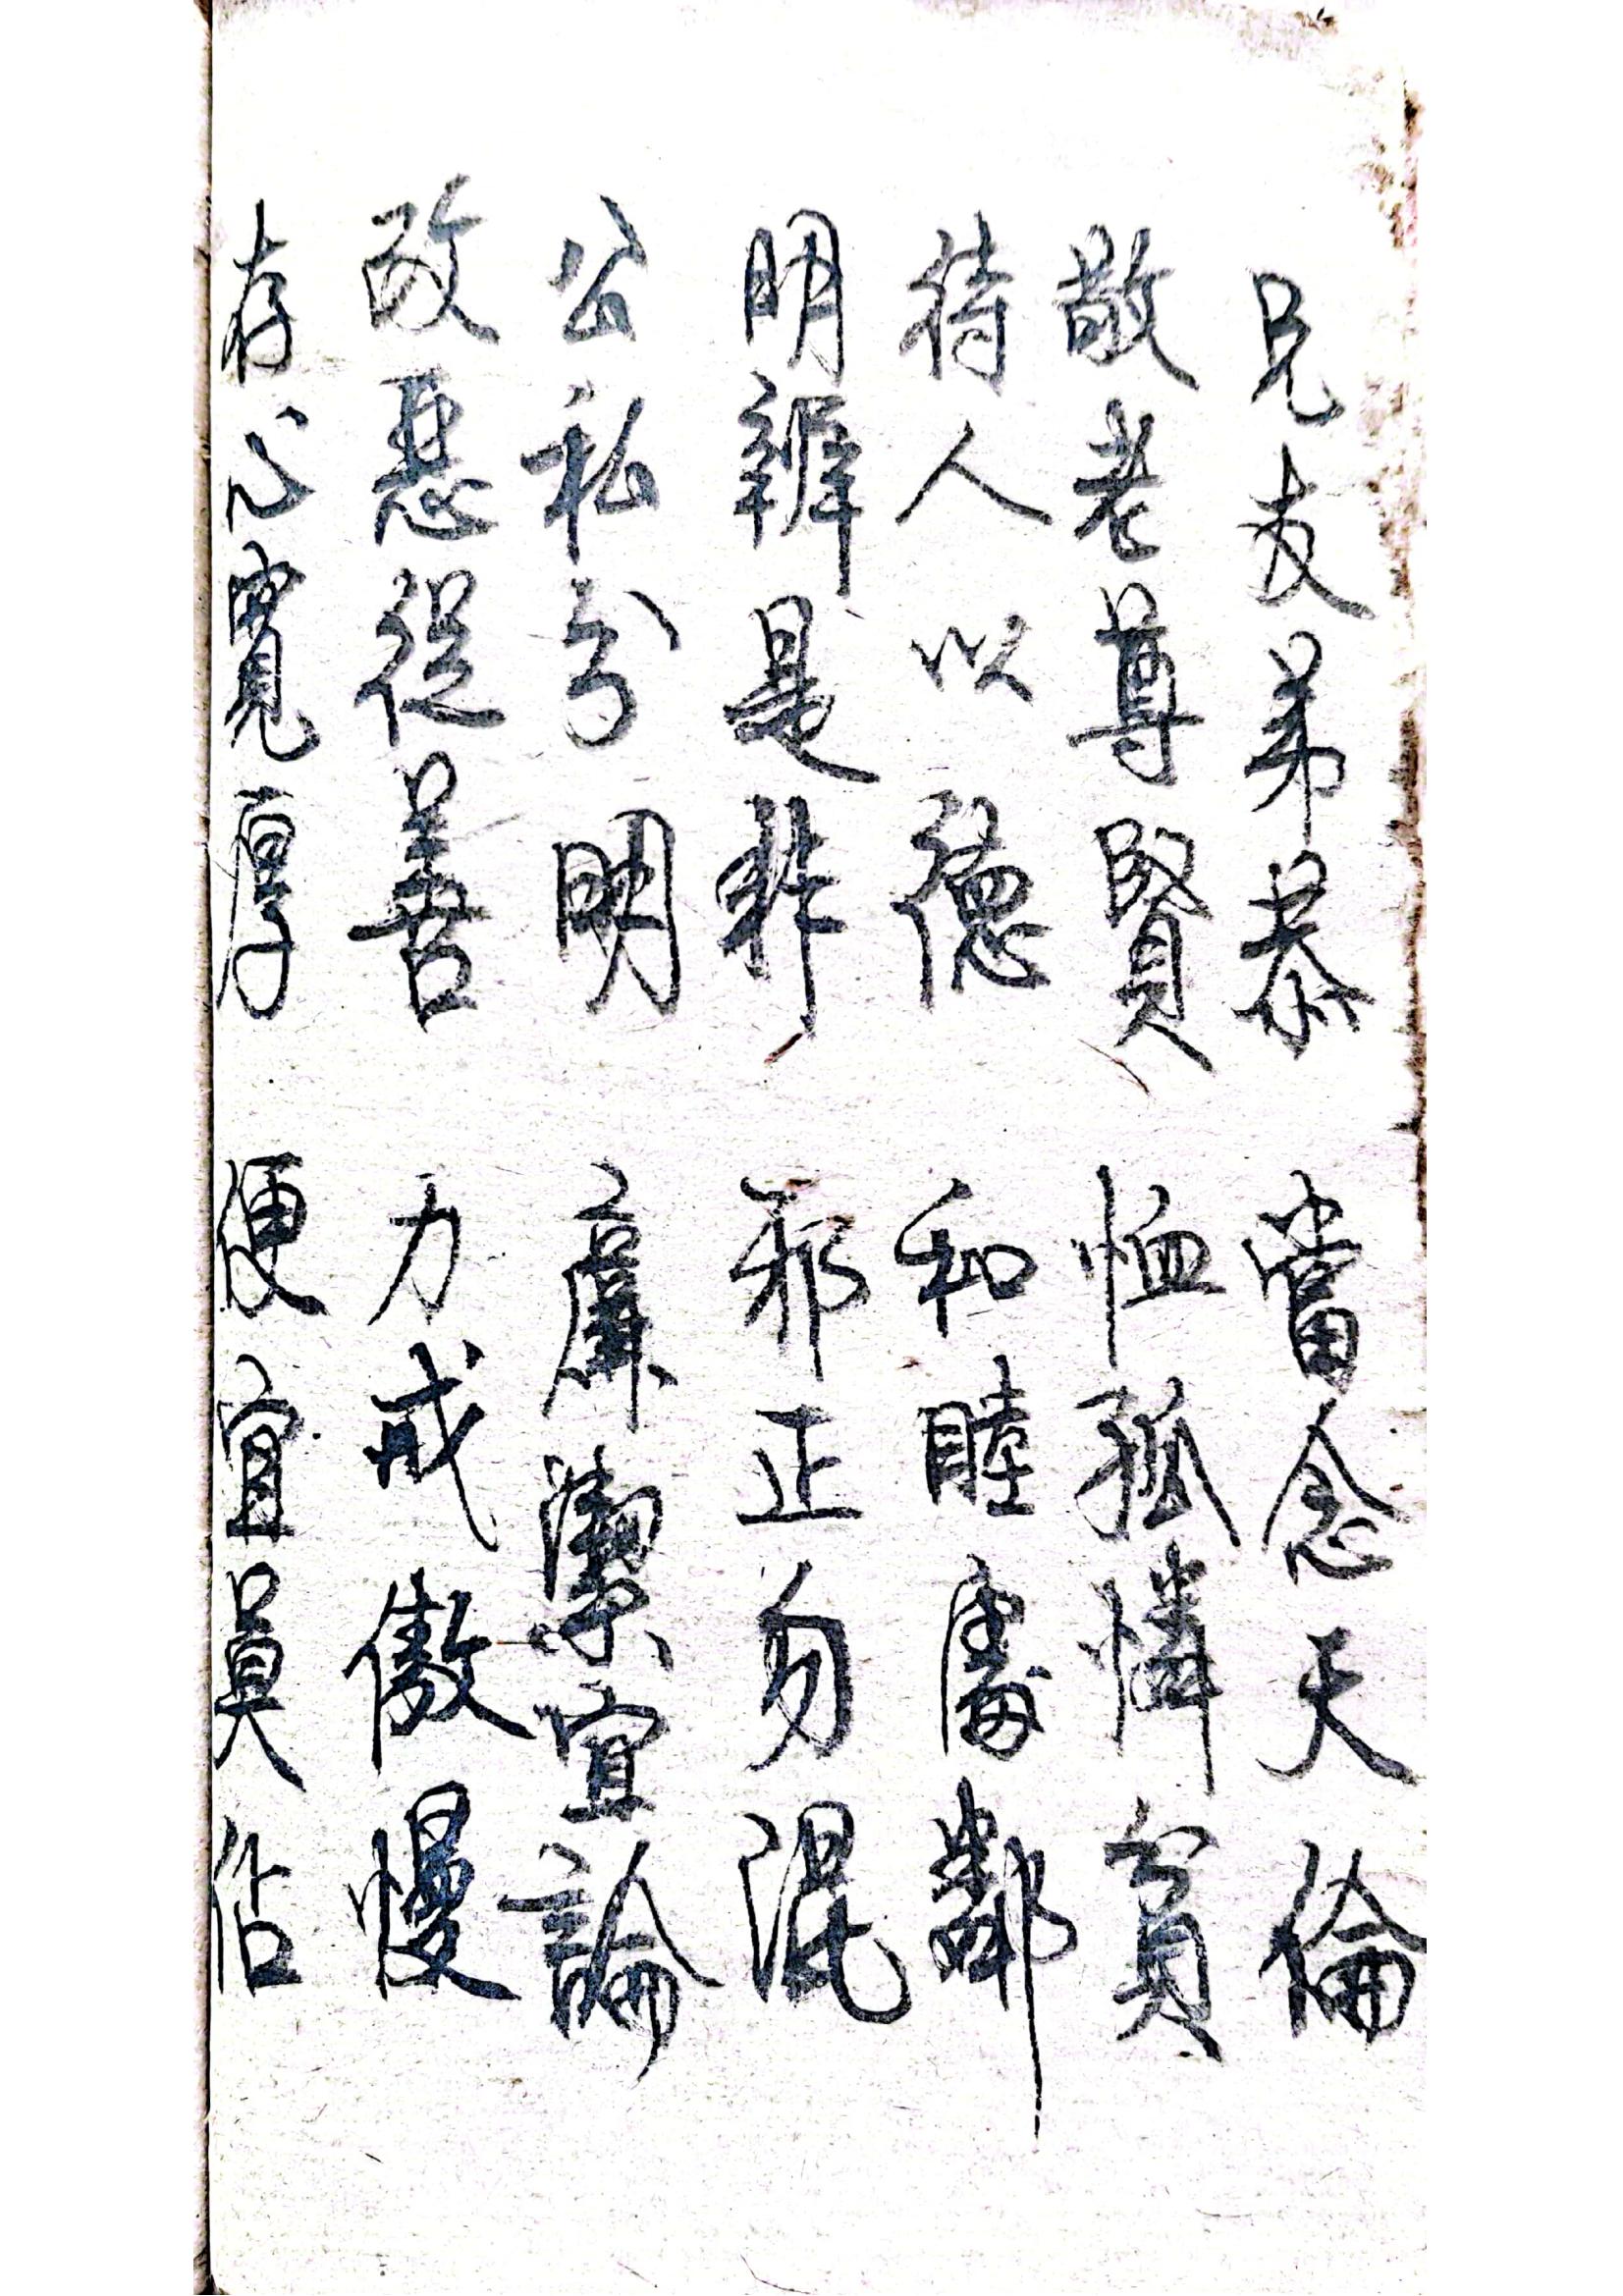 兄友弟恭 當念天倫
敬老尊賢 恤孤憐貧
待人以德 和睦鄉鄰
明辨是非 邪正勿混
公私分明 廉潔宜論
改惡從善 力戒傲慢
存心寬厚 便宜莫佔